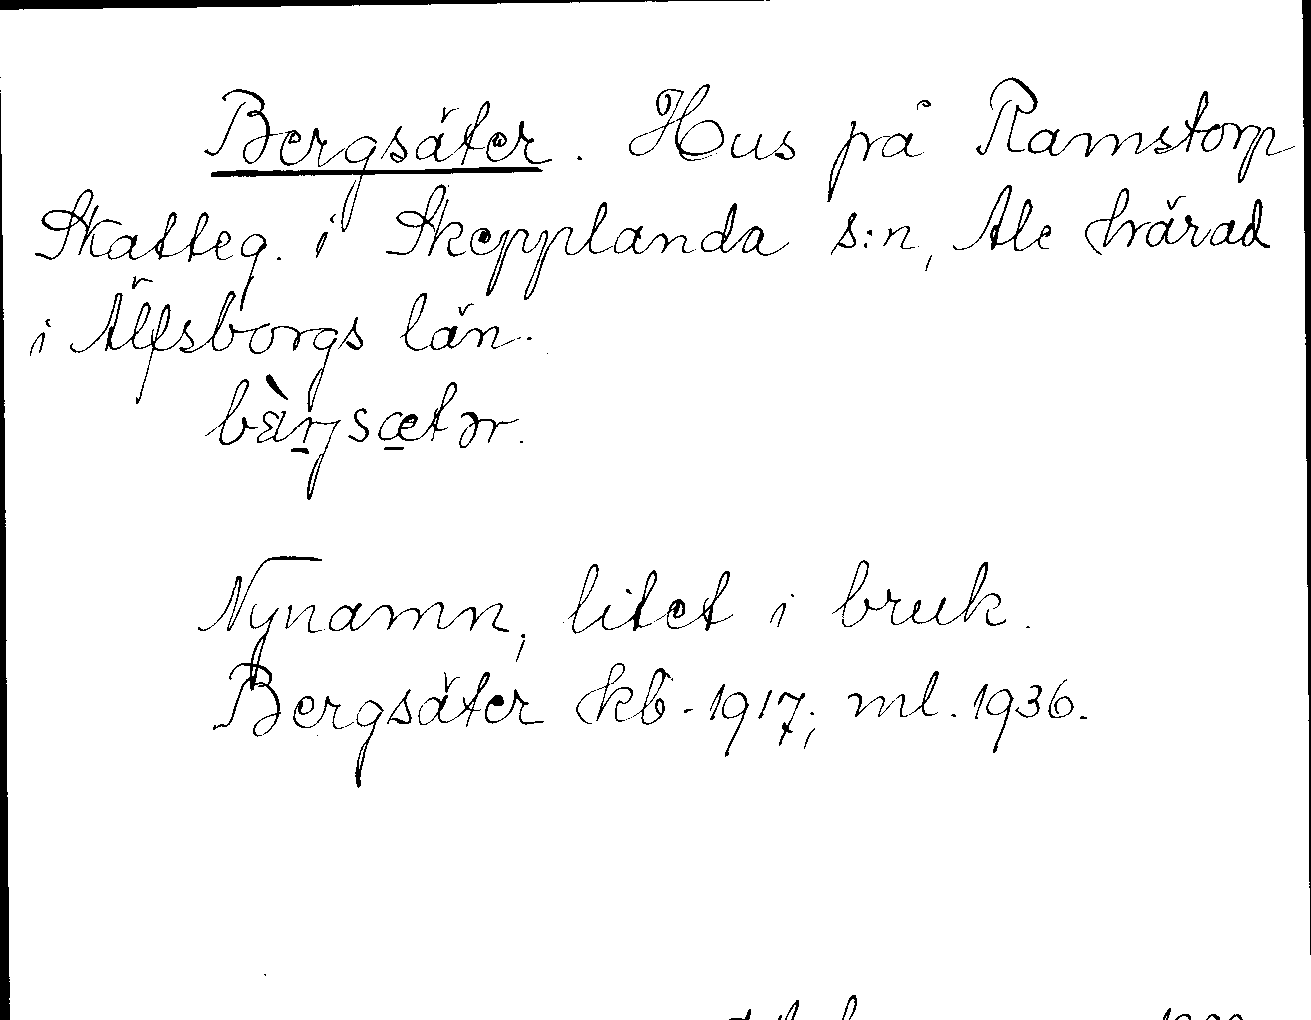 Bergsäter. Hus på Ramstorp
Skatteg. i Skepplanda s:n, Ale härad
i Älfsborgs län.
bæ̀rjsætər.
Nynamn, litet i bruk.
Bergsäter kb. 1917; ml. 1936.